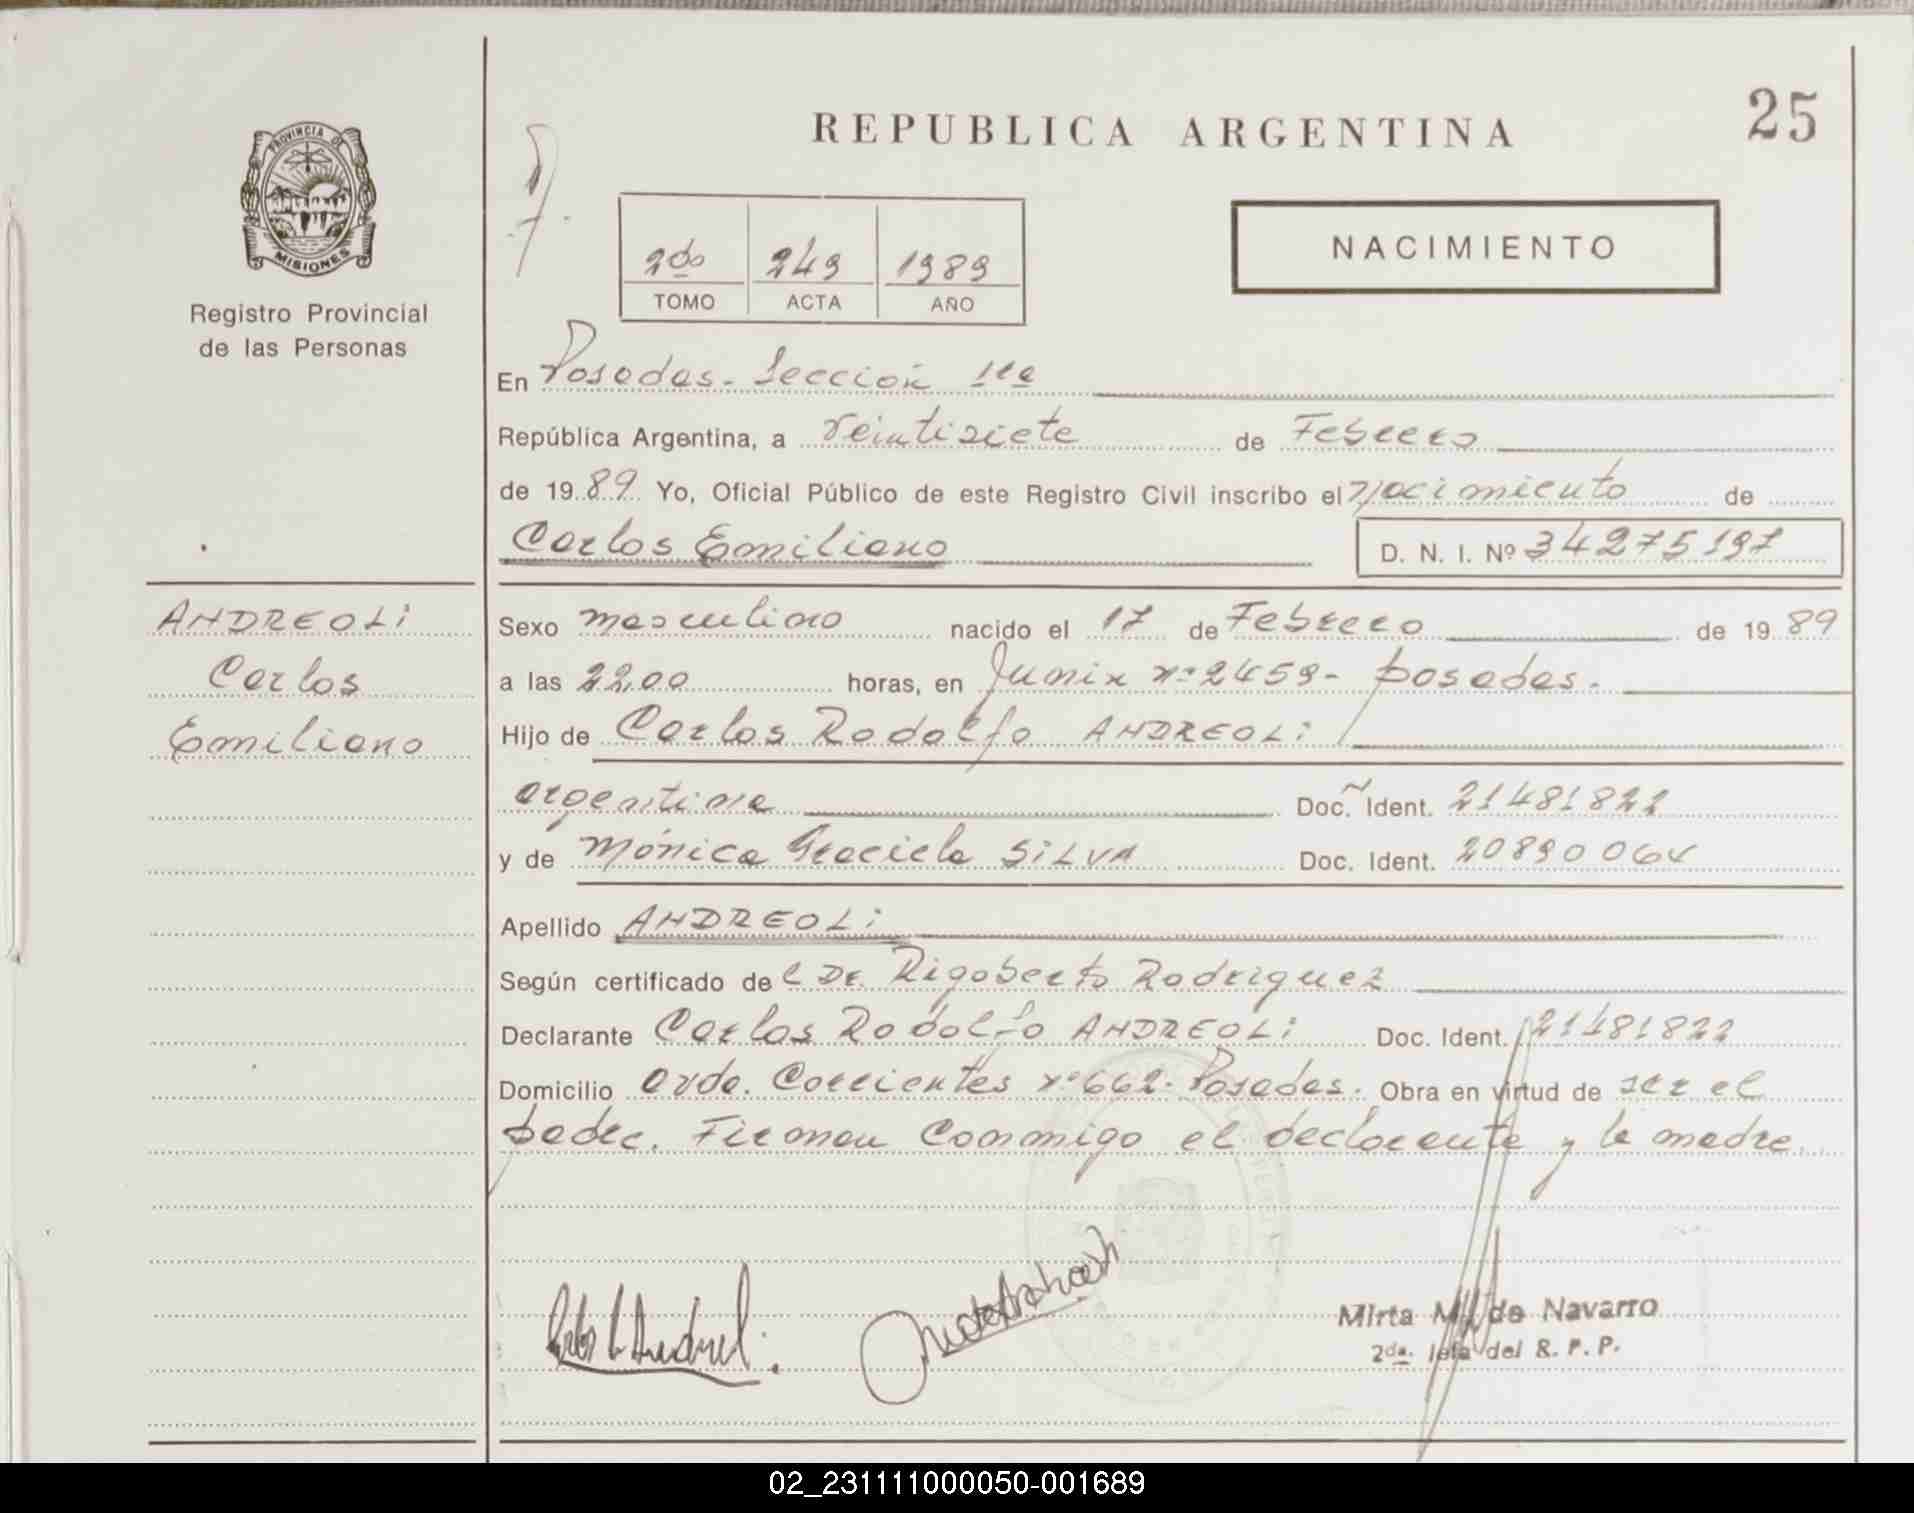 REPUBLICA ARGENTINA
25
PROVINCIA DE
MISIONES
Registro Provincial
de las Personas
2do 249 1989
TOMO ACTA AÑO
NACIMIENTO
En Posadas. Sección 11a
República Argentina, a Veintisiete de Febrero
de 19 89 Yo, Oficial Público de este Registro Civil inscribo el nacimiento de
Carlos Emiliano
D. N. I. Nº 34275197
ANDREOLi
Carlos
Emiliano
Sexo masculino nacido el 17 de Febrero de 19 89
a las 22,00 horas, en Junin nº 2459- posadas.
Hijo de Carlos Rodolfo ANDREOLi
argentina Doc. Ident. 21481822
y de Mónica Graciela SiLVA Doc. Ident. 20890064
Apellido ANDREOLi
Según certificado de l Dr. Rigoberto Rodriguez
Declarante Carlos Rodolfo ANDREOLi Doc. Ident. 21481822
Domicilio avda. Corrientes nº 662. Posadas. Obra en virtud de ser el
padre. Firman conmigo el declarante y la madre.
Mirta de Navarro
2da. Jefa del R. P. P.
02_231111000050-001689